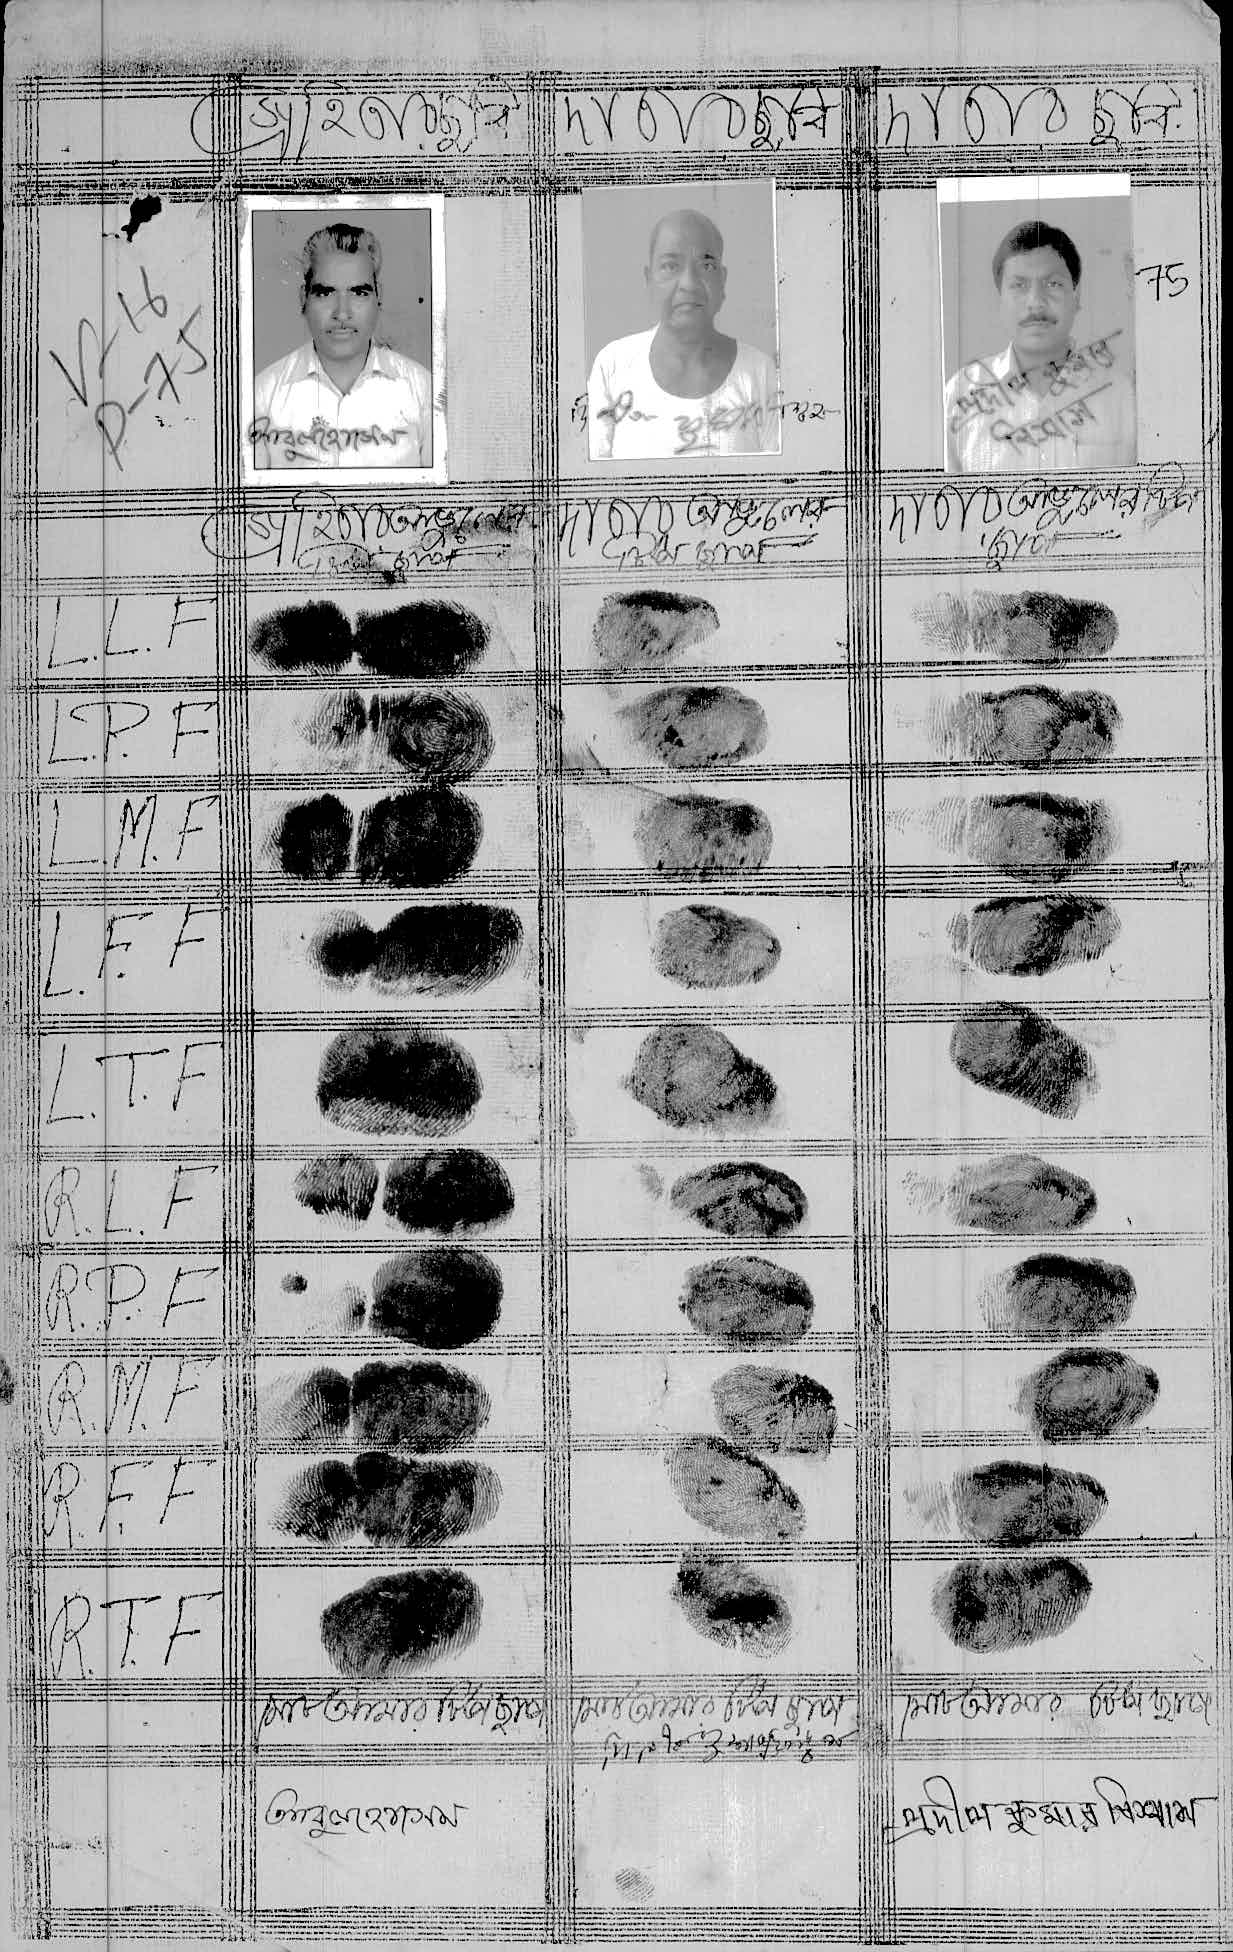 গ্রহিতার ছবি দাতার ছবি দাতার ছবি
V-16
P-75
75
আবুল হোসেন
প্রদীপ কুমার
বিশ্বাস
গ্রহিতার আঙ্গুলের দাতার আঙ্গুলের দাতার আঙ্গুলের টিপ
টিপ ছাপ টিপ ছাপ ছাপ
L.L.F
L.P.F
L.M.F
L.F.F
L.T.F
R.L.F
R.P.F
R.M.F
R.F.F
R.T.F
মোট আমার টিপ ছাপ মোট আমার টিপ ছাপ মোট আমার টিপ ছাপ
আবুল হোসেন প্রদীপ কুমার বিশ্বাস